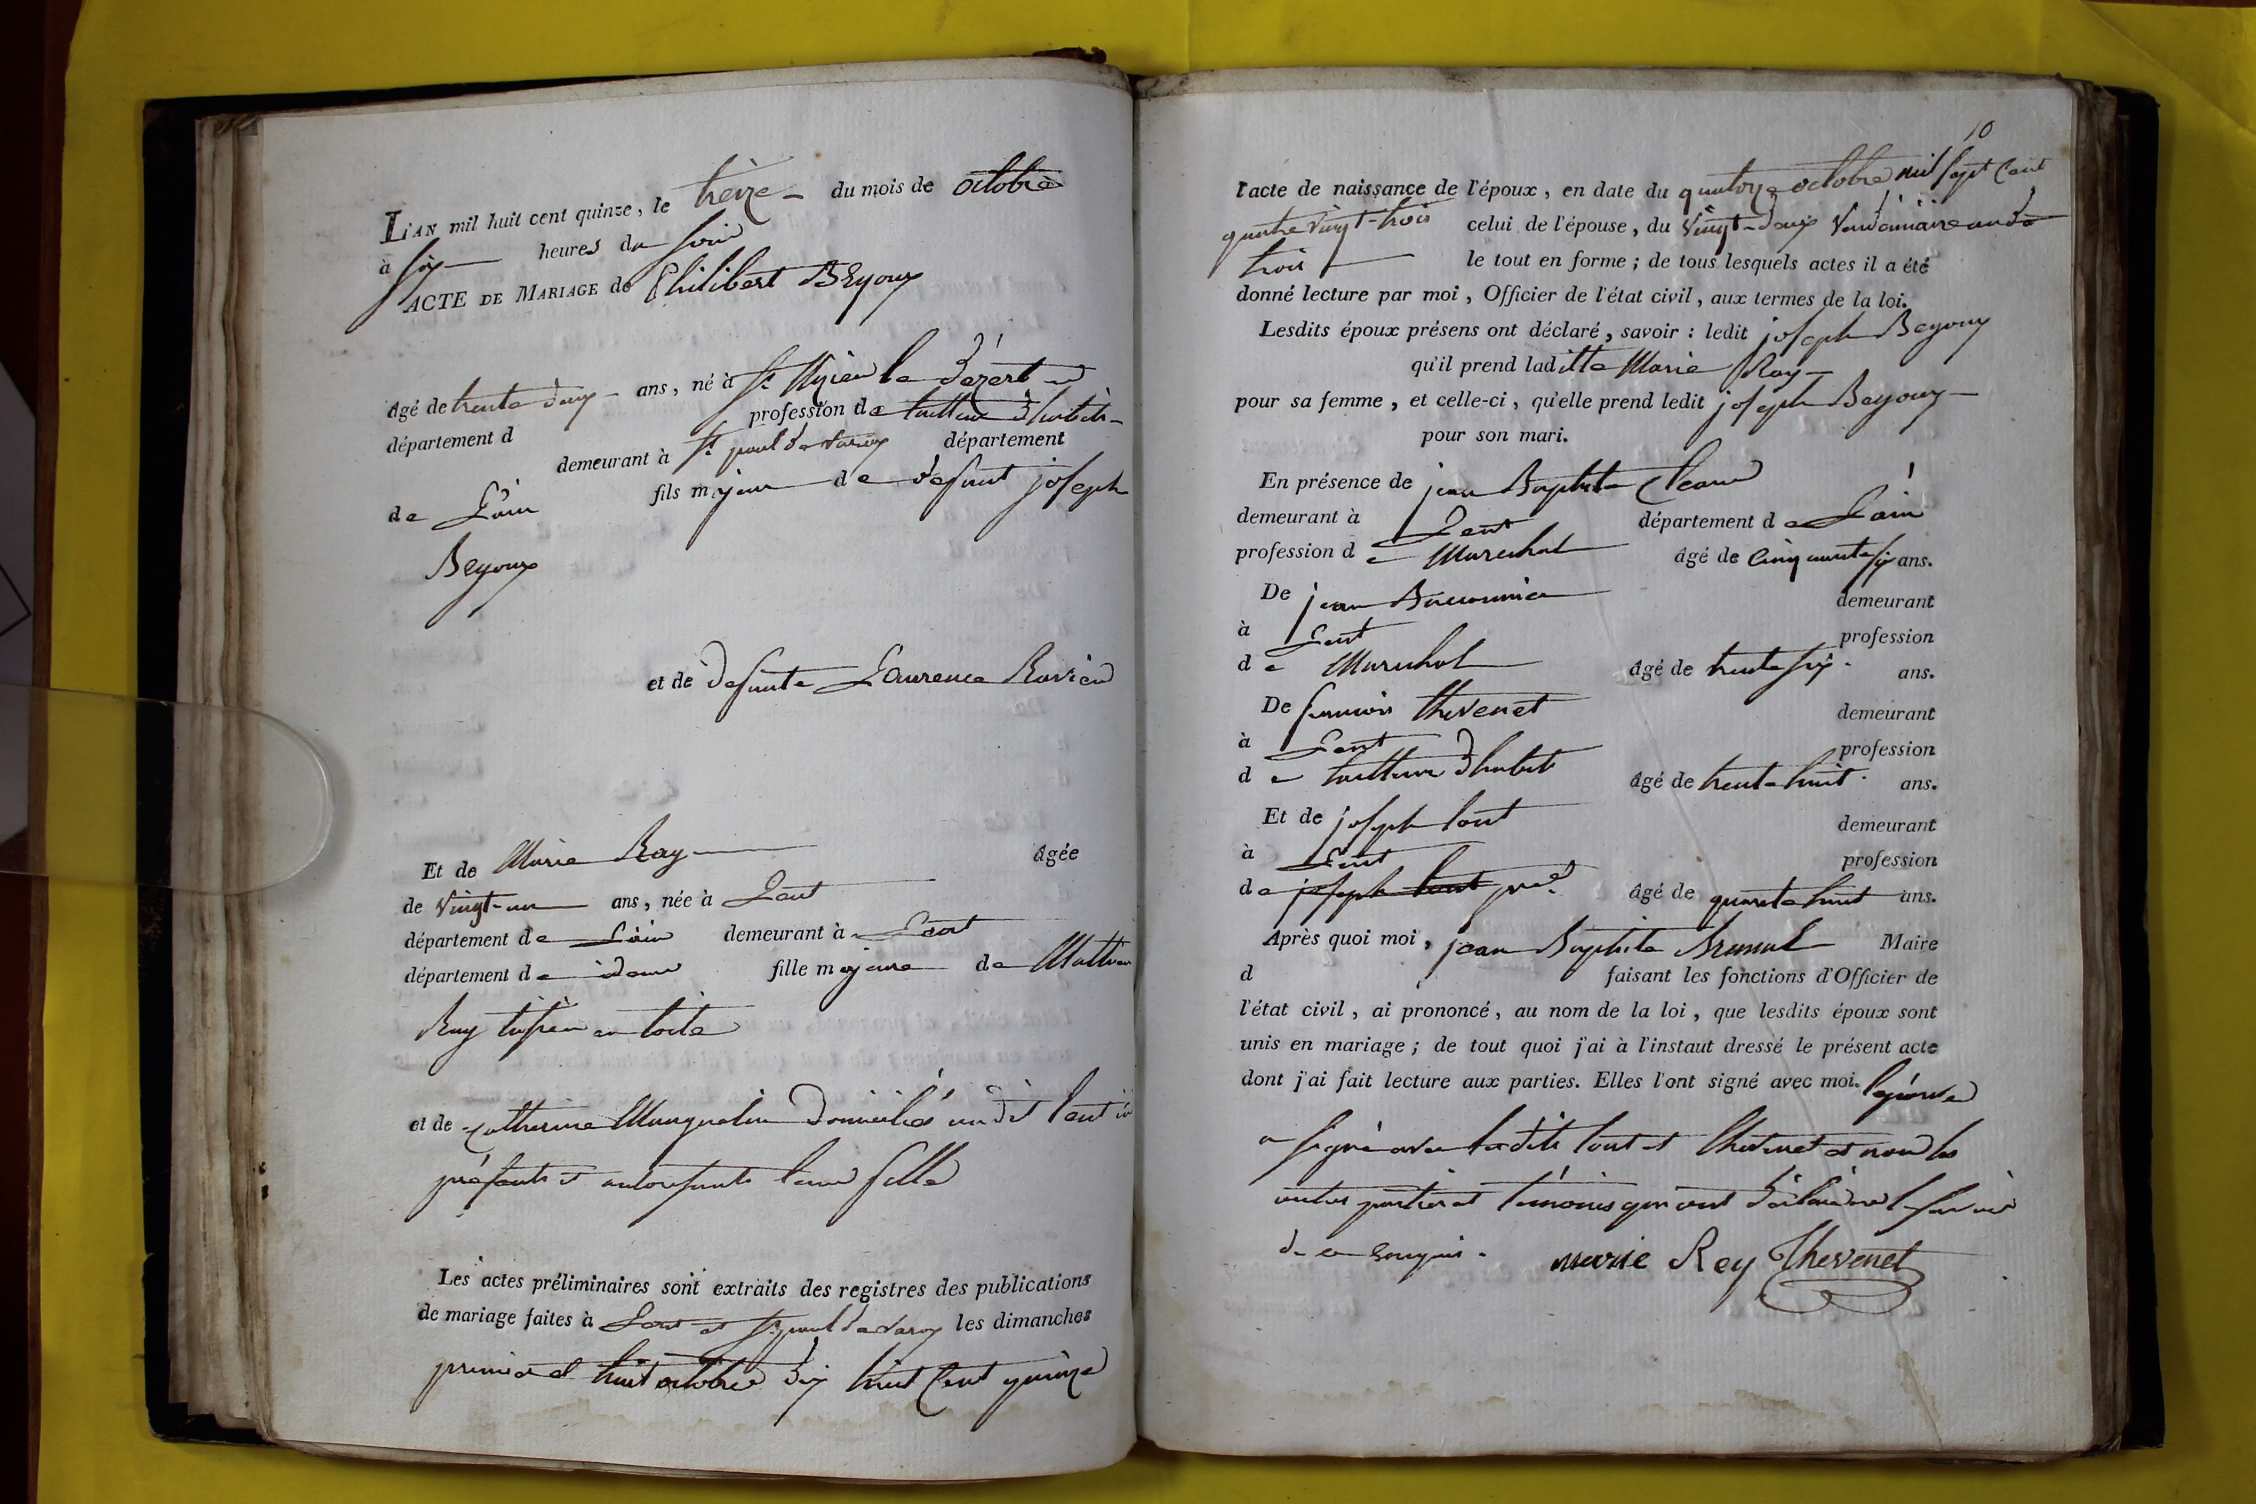 L'AN mil huit cent quinze, le treize du mois de octobre
à six heures du soir
ACTE DE MARIAGE de Philibert Beyoux
âgé de trente deux ans, né à St Nizier le dézert
département d profession de tailleur d'habits
demeurant à St paul de Varax département
de L'ain fils majeur de défunt joseph
Beyoux
et de défunte Laurence Ravier
Et de Marie Rey âgée
de vingt-un ans, née à Lent
département de L'ain demeurant à Lent
département de idem fille majeure de Mathieu
Rey tissier en toile
et de Catherine domiciliés audit Lent ici
présents et autorisants leur fille
Les actes préliminaires sont extraits des registres des publications
de mariage faites à Lent et St paul de Varax les dimanches
premier et huit octobre dix huit Cent quinze
10
l'acte de naissance de l'époux, en date du quatorze octobre mil sept Cent
quatre vingt-trois celui de l'épouse, du vingt-deux Vendémiaire an
trois le tout en forme ; de tous lesquels actes il a été
donné lecture par moi, Officier de l'état civil, aux termes de la loi.
Lesdits époux présens ont déclaré, savoir : ledit joseph Beyoux
qu'il prend laditte Marie Rey
pour sa femme, et celle-ci, qu'elle prend ledit joseph Beyoux
pour son mari.
En présence de jean Baptiste
demeurant à Lent département de L'ain
profession de Marechal âgé de Cinquante six ans.
De jean demeurant
à Lent profession
de Marechal âgé de trente six ans.
De francois thevenet demeurant
à Lent profession
de tailleur d'habits âgé de trente huit ans.
Et de joseph tout demeurant
à Lent profession
de joseph tout âgé de quarante huit ans.
Après quoi moi, jean Baptiste Maire
d faisant les fonctions d'Officier de
l'état civil, ai prononcé, au nom de la loi, que lesdits époux sont
unis en mariage ; de tout quoi j'ai à l'instaut dressé le présent acte
dont j'ai fait lecture aux parties. Elles l'ont signé avec moi. l'épouse
a signé avec lesdits tout et thevenet et non les
autres parties et témoins qui ont déclaré ne savoir
de ce requis.
marie Rey Thevenet